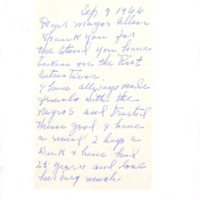 Sep 9 1966
Dear Mayor Allen
Thank you for
the Stand you have
taken on the Riot
Situation.
I have allways made
friends with the
Negros and treated
them good I have
a maid 2 days a
Week I have had
25 years and love
her very much.